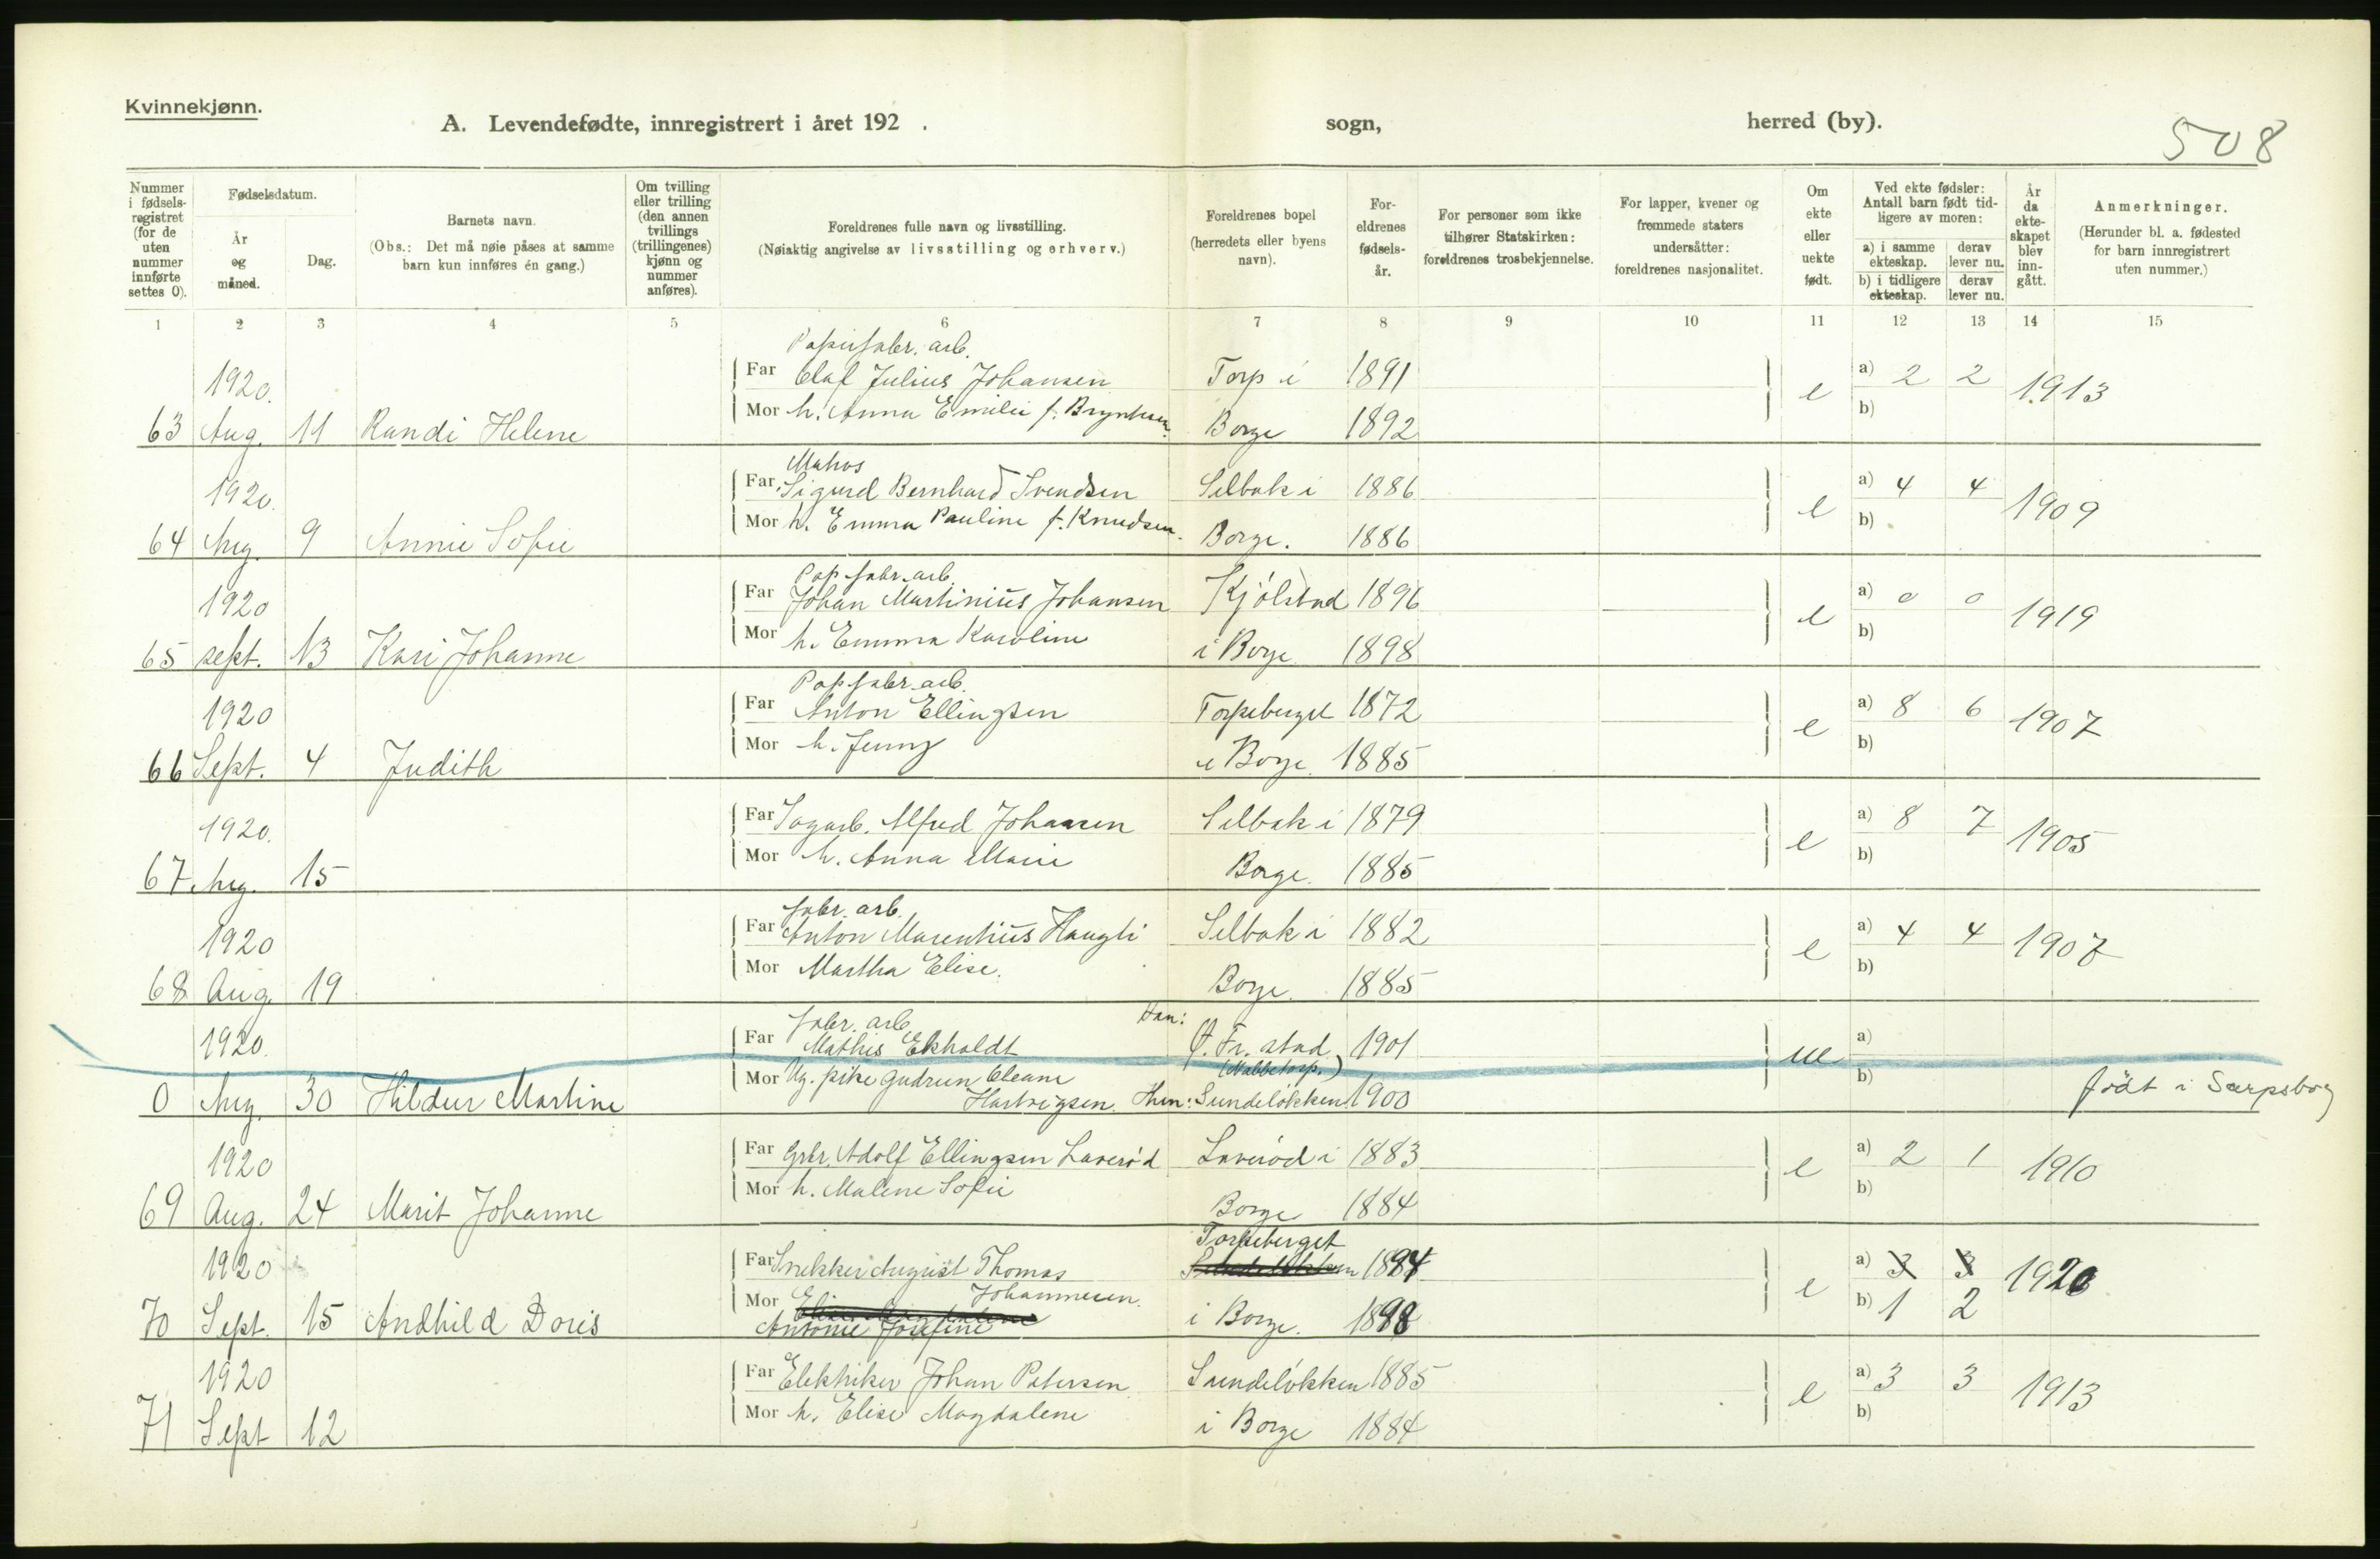 Kvinnekjønn.
A. Levendefødte, innregistrert i året 192 . sogn, herred (by).
508
Nummer i fødselsregistret (for de uten nummer innførte settes 0).
Fødselsdatum.
År og måned.
Dag.
Barnets navn.
(Obs.: Det må nøie påses at samme barn kun innføres én gang.)
Om tvilling eller trilling (den annen tvillings (trillingenes) kjønn og nummer anføres).
Foreldrenes fulle navn og livsstilling.
(Nøiaktig angivelse av livsstilling og erhverv.)
Foreldrenes bopel (herredets eller byens navn).
Foreldrenes fødselsår.
For personer som ikke tilhører Statskirken: foreldrenes trosbekjennelse.
For lapper, kvener og fremmede staters undersåtter: foreldrenes nasjonalitet.
Om ekte eller uekte født.
Ved ekte fødsler: Antall barn født tidligere av moren:
a) i samme ekteskap. derav lever nu.
b) i tidligere ekteskap. derav lever nu.
År da ekteskapet blev inngått.
Anmerkninger.
(Herunder bl. a. fødested for barn innregistrert uten nummer.)
1 2 3 4 5 6 7 8 9 10 11 12 13 14 15
Papirfabr. arb.
1920. Far Olaf Julius Johansen Torp i 1891 e a) 2 2 1913
63 Aug. 11 Randi Helene Mor h. Anna Emilie f. Brynhsen. Borge 1892 b)
Matros
1920. Far Sigurd Bernhard Svendsen Selbak i 1886 e a) 4 4 1909
64 Aug. 9 Annie Sofie Mor h. Emma Pauline f. Knudsen. Borge. 1886 b)
Pap.fabr.arb.
1920 Far Johan Martinius Johansen Kjölstad 1896 e a) 0 0 1919
65 sept. 13 Kari Johanne Mor h. Emma Karoline i Borge 1898 b)
Papfabr.arb.
1920 Far Anton Ellingsen Torpeberget 1872 e a) 8 6 1907
66 Sept. 4 Judith Mor h. Jenny i Borge. 1885 b)
1920. Far Sagarb. Alfred Johansen Selbak i 1879 e a) 8 7 1905
67 Aug. 15 Mor h. Anna Marie Borge. 1885 b)
fabr. arb.
1920 Far Anton Marentius Haugli Selbak i 1882 e a) 4 4 1907
68 Aug. 19 Mor Martha Elise. Borge. 1885 b)
fabr. arb. Han:
1920. Far Mathis Ekholdt Ø. Fr. stad 1901 ue a)
(Nabbetorp.)
0 Aug. 30 Hildur Martine Mor Ug. pike Gudrun Oleane b)
Hartvigsen. Hun: Sundeløkken 1900 födt i Sarpsborg
1920 Far Grbr. Adolf Ellingsen Laverød Laverød i 1883 e a) 2 1 1910
69 Aug. 24 Marit Johanne Mor h. Malene Sofie Borge 1884 b)
Torpeberget
1920 Far Snekker August Thomas Sundeløkken 1894 e a) 3 3 1920
Johannesen.
70 Sept. 15 Andhild Doris Mor Elise Magdalene i Borge. 1898 b) 1 2
Antonie Josefine
1920 Far Elektriker Johan Petersen Sundeløkken 1885 e a) 3 3 1913
71 Sept 12 Mor h. Elise Magdalene i Borge 1884 b)